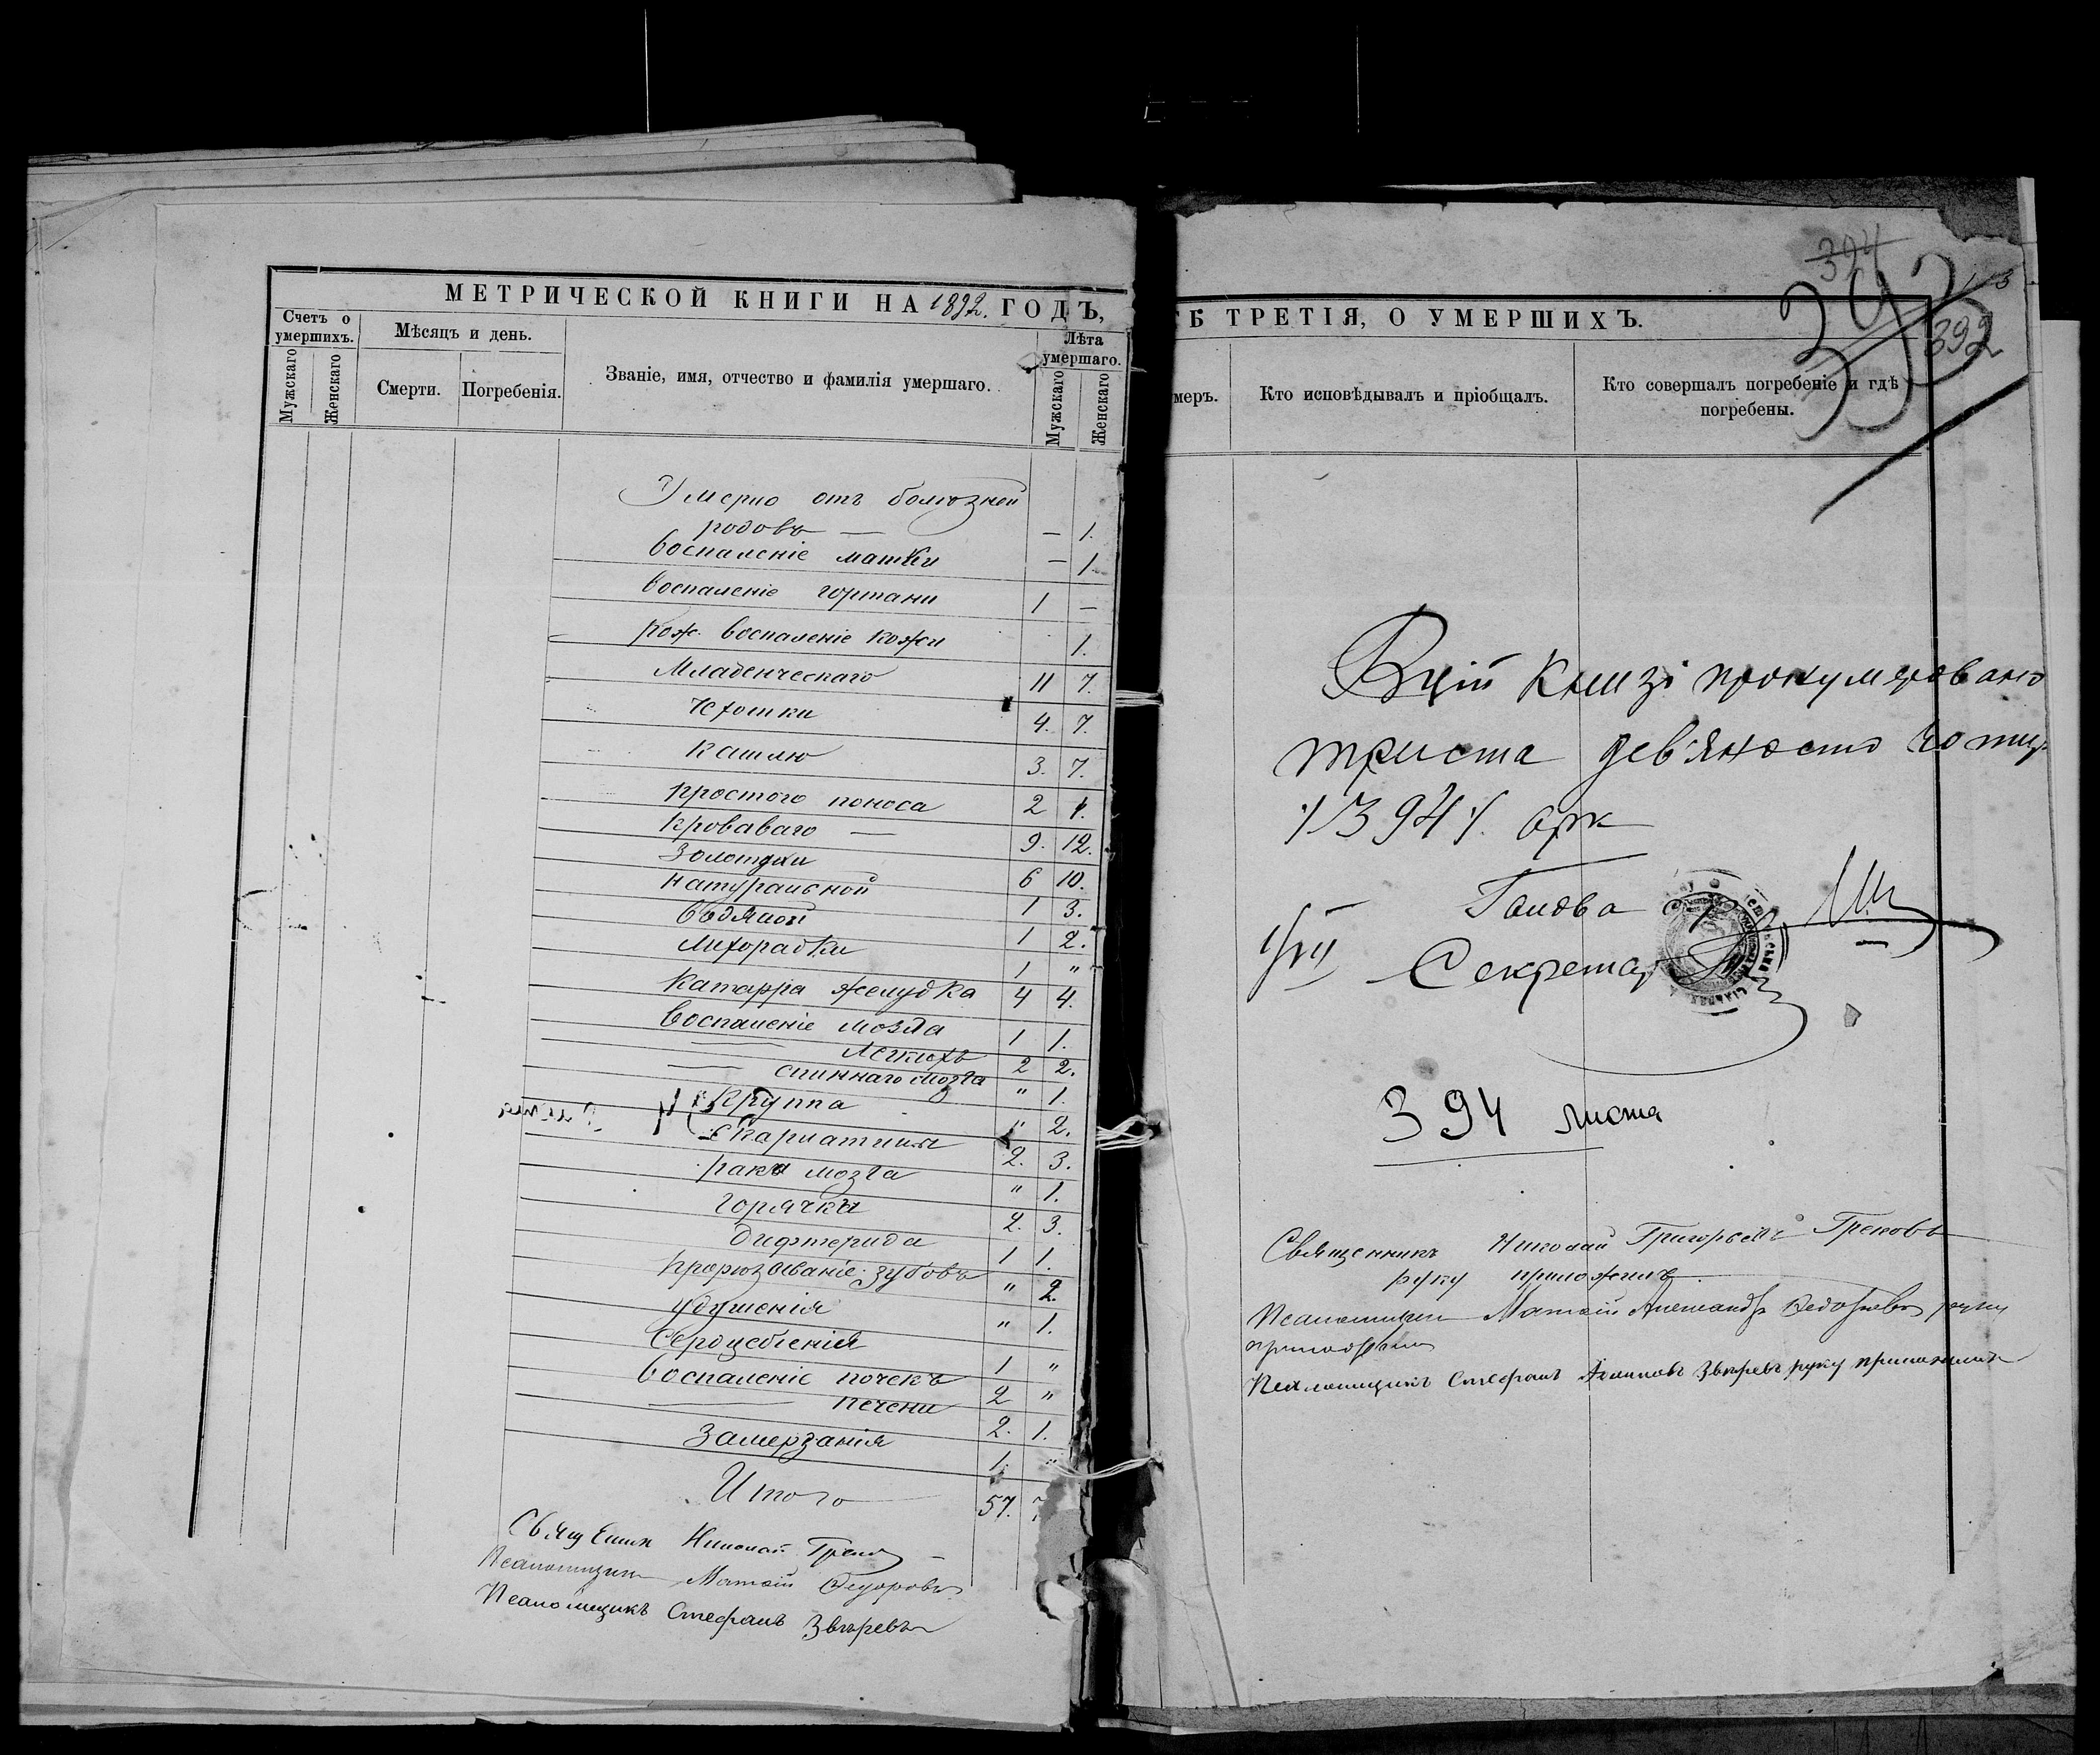 МЕТРИЧЕСКОЙ КНИГИ НА 1892. ГОДЪ,
Счетъ о умершихъ.
Мужскаго
Женскаго
Мѣсяцъ и день.
Смерти.
Погребенія.
Званіе, имя, отчество и фамилія умершаго.
Лѣта умершаго.
Мужскаго
Женскаго
Умерло отъ болѣзней
родовъ — — 1.
воспаленіе матки — 1.
воспаленіе гортани 1 —
рож. воспаленіе кожи 1.
Младенческаго 11 7.
Чехотки 4. 7.
Кашлю 3. 7.
простого поноса 2 1.
кроваваго — 9. 12.
Золотухи 6 10.
натуральной 1 3.
водяной 1 2.
лихорадки 1 "
Катарра желудка 4 4.
воспаленіе мозга 1 1.
— легкихъ 2 2.
— спиннаго мозга " 1.
Круппа " 2.
Скарлатины 2. 3.
рака мозга " 1.
горячки 2. 3.
дифтерида 1 1.
прорѣзываніе зубовъ " 2.
удушенія " 1.
Сердцебіенія 1 "
воспаленіе почекъ 2 "
— печени 2. 1.
Замерзанія 1. "
Итого 57.
Николай
Псаломщикъ Матвій Федоровъ
Псаломщикъ Стефанъ Звѣревъ
ТЬ ТРЕТІЯ, О УМЕРШИХЪ.
меръ.
Кто исповѣдывалъ и пріобщалъ.
Кто совершалъ погребеніе и гдѣ погребены.
394
393
392
В цій книзі пронумеровано
триста дев'яносто чотир
/394/. арк
Голова
Секретар
394 листа
Священникъ Николай Григорьевъ Грековъ
руку приложилъ
Псаломщикъ Матвій Федоровъ руку
приложилъ
Псаломщикъ Стефанъ Звѣревъ руку приложилъ